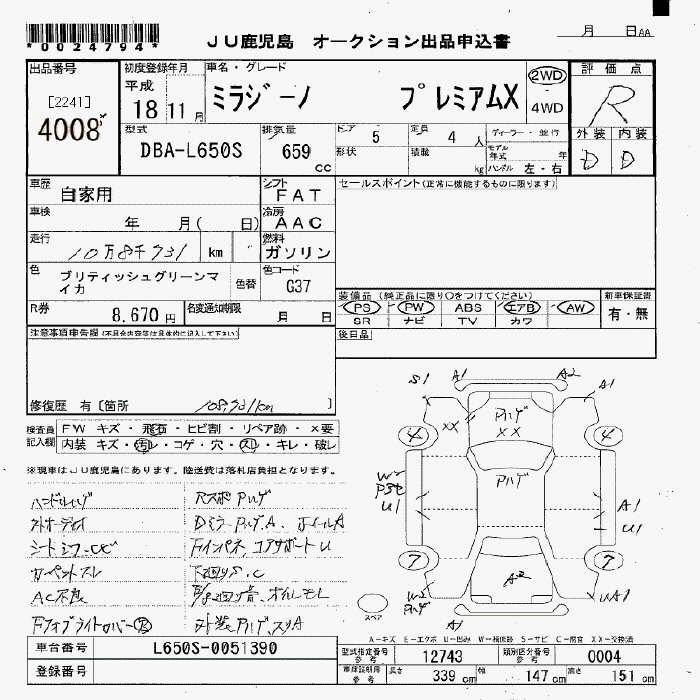 *0024794*
JU鹿児島 オークション出品申込書
月 日AA
出品番号
[2241]
4008
初度登録年月
平成
18 11 月
車名・グレード
ミラジーノ プレミアムX
2WD
4WD
評価点
R
外装 内装
D D
型式
DBA-L650S
排気量
659
cc
ドア 5
定員 4 人
ディーラー・並行
形状
積載 kg
モデル年式 年
ハンドル 左・右
車歴
自家用
シフト
FAT
車検
年 月( 日)
冷房
AAC
走行
10万8千931 km
燃料
ガソリン
色
ブリティッシュグリーンマイカ
色替
色コード
G37
R券
8,670 円
名変通知期限
月 日
セールスポイント(正常に機能するものに限ります)
装備品(純正品に限り○をつけてください)
PS PW ABS エアB AW
SR ナビ TV カワ
新車保証書
有・無
後日品
注意事項申告欄(不具合内容等は具体的に記入して下さい)
修復歴 有〔箇所 108,931km 〕
検査員記入欄
FW キズ・飛石・ヒビ割・リペア跡・×要
内装 キズ・汚れ・コゲ・穴・スレ・キレ・破レ
※現車はJU鹿児島にあります。陸送費は落札店負担となります。
外オーディオ
カーペットスレ
AC不良
下回りS.C
S1 A1 A2 A1
XX
ハゲ
XX
4 4
ハゲ
W2
U1
A1
U1
7 7
A2
W2
ハゲ
UA1
A1
スペア
A-キズ E-エクボ U-凹み W-補修跡 S-サビ C-腐食 XX-交換済
車台番号
L650S-0051390
登録番号
型式指定番号
参考
12743
類別区分番号
参考
0004
車庫証明用
参考
長さ 339 cm
幅 147 cm
高さ 151 cm